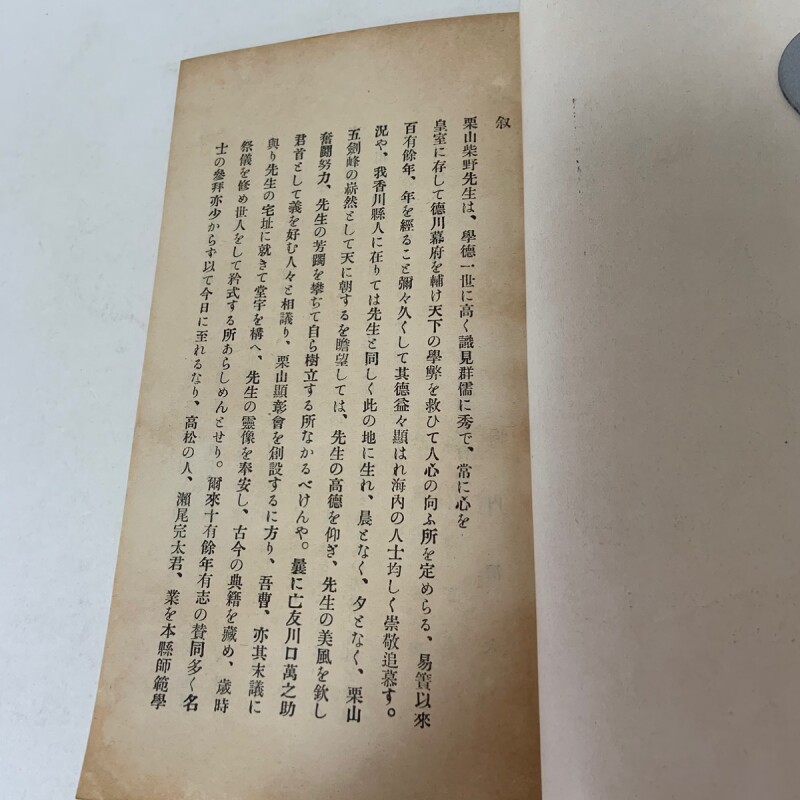 叙
栗山柴野先生は、學德一世に高く識見群儒に秀で、常に心を
皇室に存して德川幕府を輔け天下の學弊を救ひて人心の向ふ所を定めらる、易簀以來
百有餘年、年を經ること彌々久くして其德益々顯はれ海內の人士均しく崇敬追慕す。
況や、我香川縣人に在りては先生と同しく此の地に生れ、晨となく、夕となく、栗山
五劍峰の嶄然として天に朝するを瞻望しては、先生の高德を仰ぎ、先生の美風を欽し
奮鬪努力、先生の芳躅を攀ぢて自ら樹立する所なかるべけんや。曩に亡友川口萬之助
君首として義を好む人々と相議り、栗山顯彰會を創設するに方り、吾曹、亦其末議に
與り先生の宅址に就きて堂宇を構へ、先生の靈像を奉安し、古今の典籍を藏め、歲時
祭儀を修め世人をして矜式する所あらしめんとせり。爾來十有餘年有志の賛同多く名
士の參拜亦少からず以て今日に至れるなり、高松の人、瀨尾完太君、業を本縣師範學